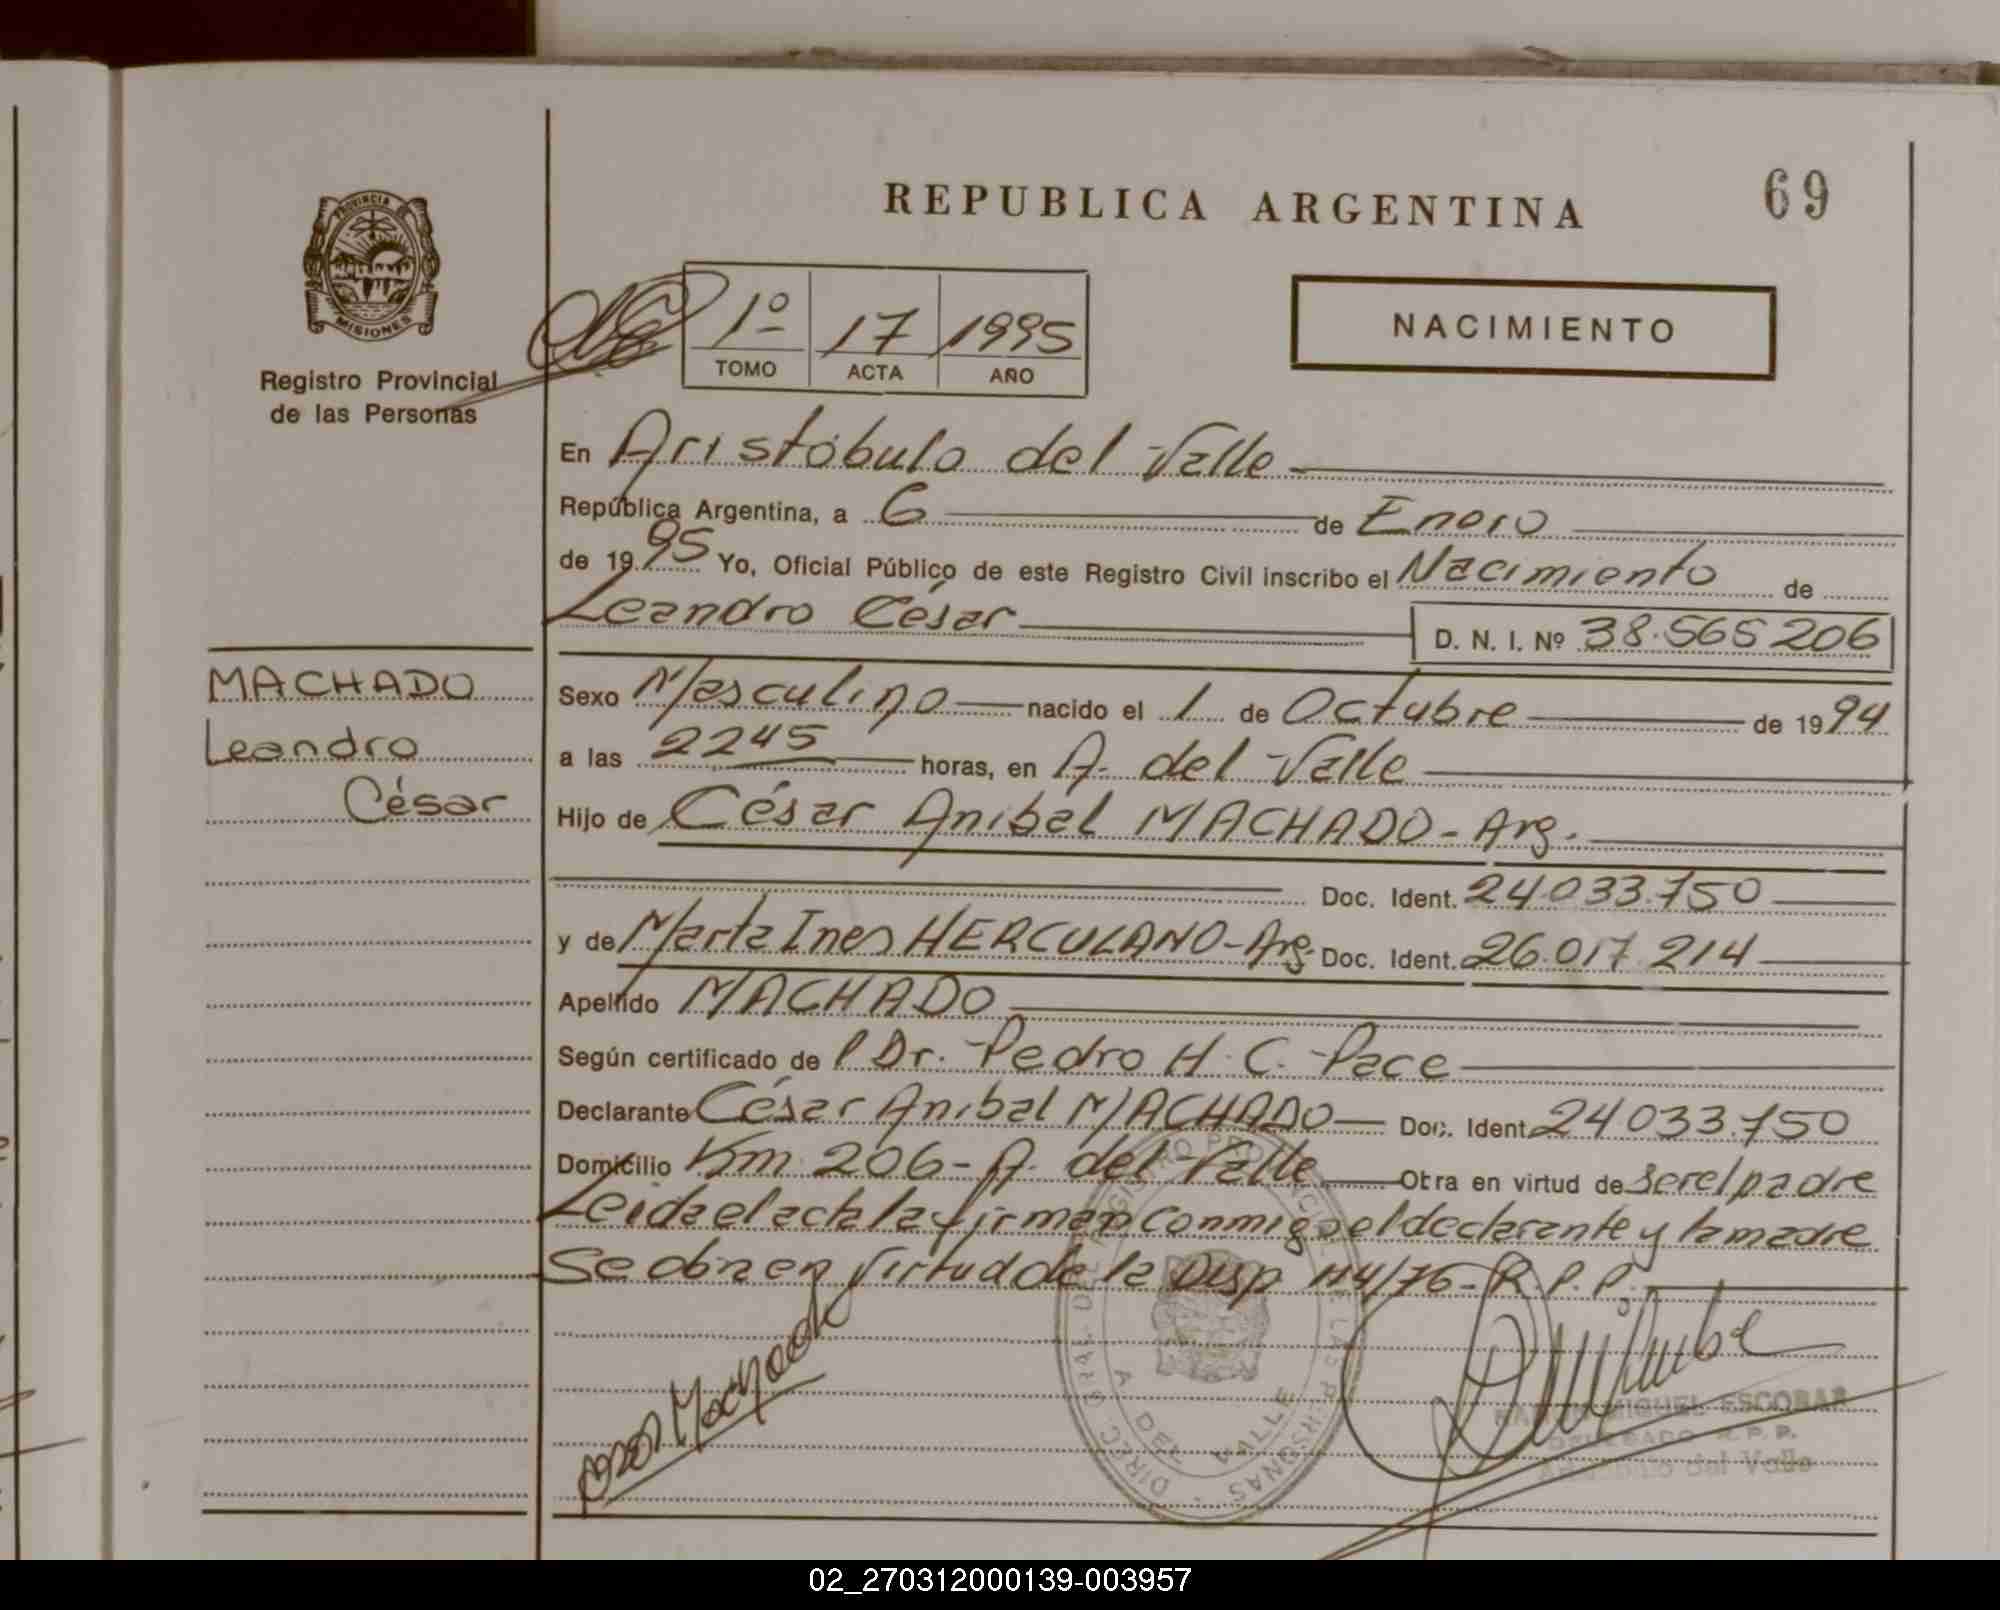 REPUBLICA ARGENTINA
69
PROVINCIA DE
MISIONES
Registro Provincial
de las Personas
1º 17 1995
TOMO ACTA AÑO
NACIMIENTO
En Aristóbulo del Valle
República Argentina, a 6 de Enero
de 1995 Yo, Oficial Público de este Registro Civil inscribo el Nacimiento de
Leandro César D. N. I. Nº 38.565206
MACHADO
Leandro
César
Sexo Masculino nacido el 1 de Octubre de 1994
a las 2245 horas, en A. del Valle
Hijo de César Anibal MACHADO - Arg.
Doc. Ident. 24.033.750
y de Marta Ines HERCULANO - Arg. Doc. Ident. 26.017.214
Apellido MACHADO
Según certificado de l Dr. Pedro H. C. Pace
Declarante César Anibal MACHADO Doc. Ident. 24.033.750
Domicilio Km 206 - A. del Valle Obra en virtud de ser el padre
Leida el acta la firman conmigo el declarante y la madre
Se obra en virtud de la Disp 114/76 - R. P. P.
DIREC GRAL DEL REGISTRO PROVINCIAL DE LAS PERSONAS
A DEL VALLE
Machado
MIGUEL ESCOBAR
DELEGADO R. P. P.
Aristóbulo del Valle
02_270312000139-003957